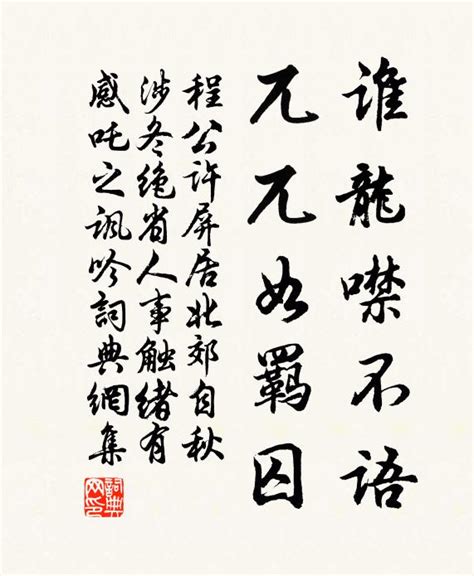 谁龍噤不语
兀兀如羁囚
程公许屏居北郊自秋
涉冬绝省人事触绪有
感吒之讽吟詞典網集
詞典网印